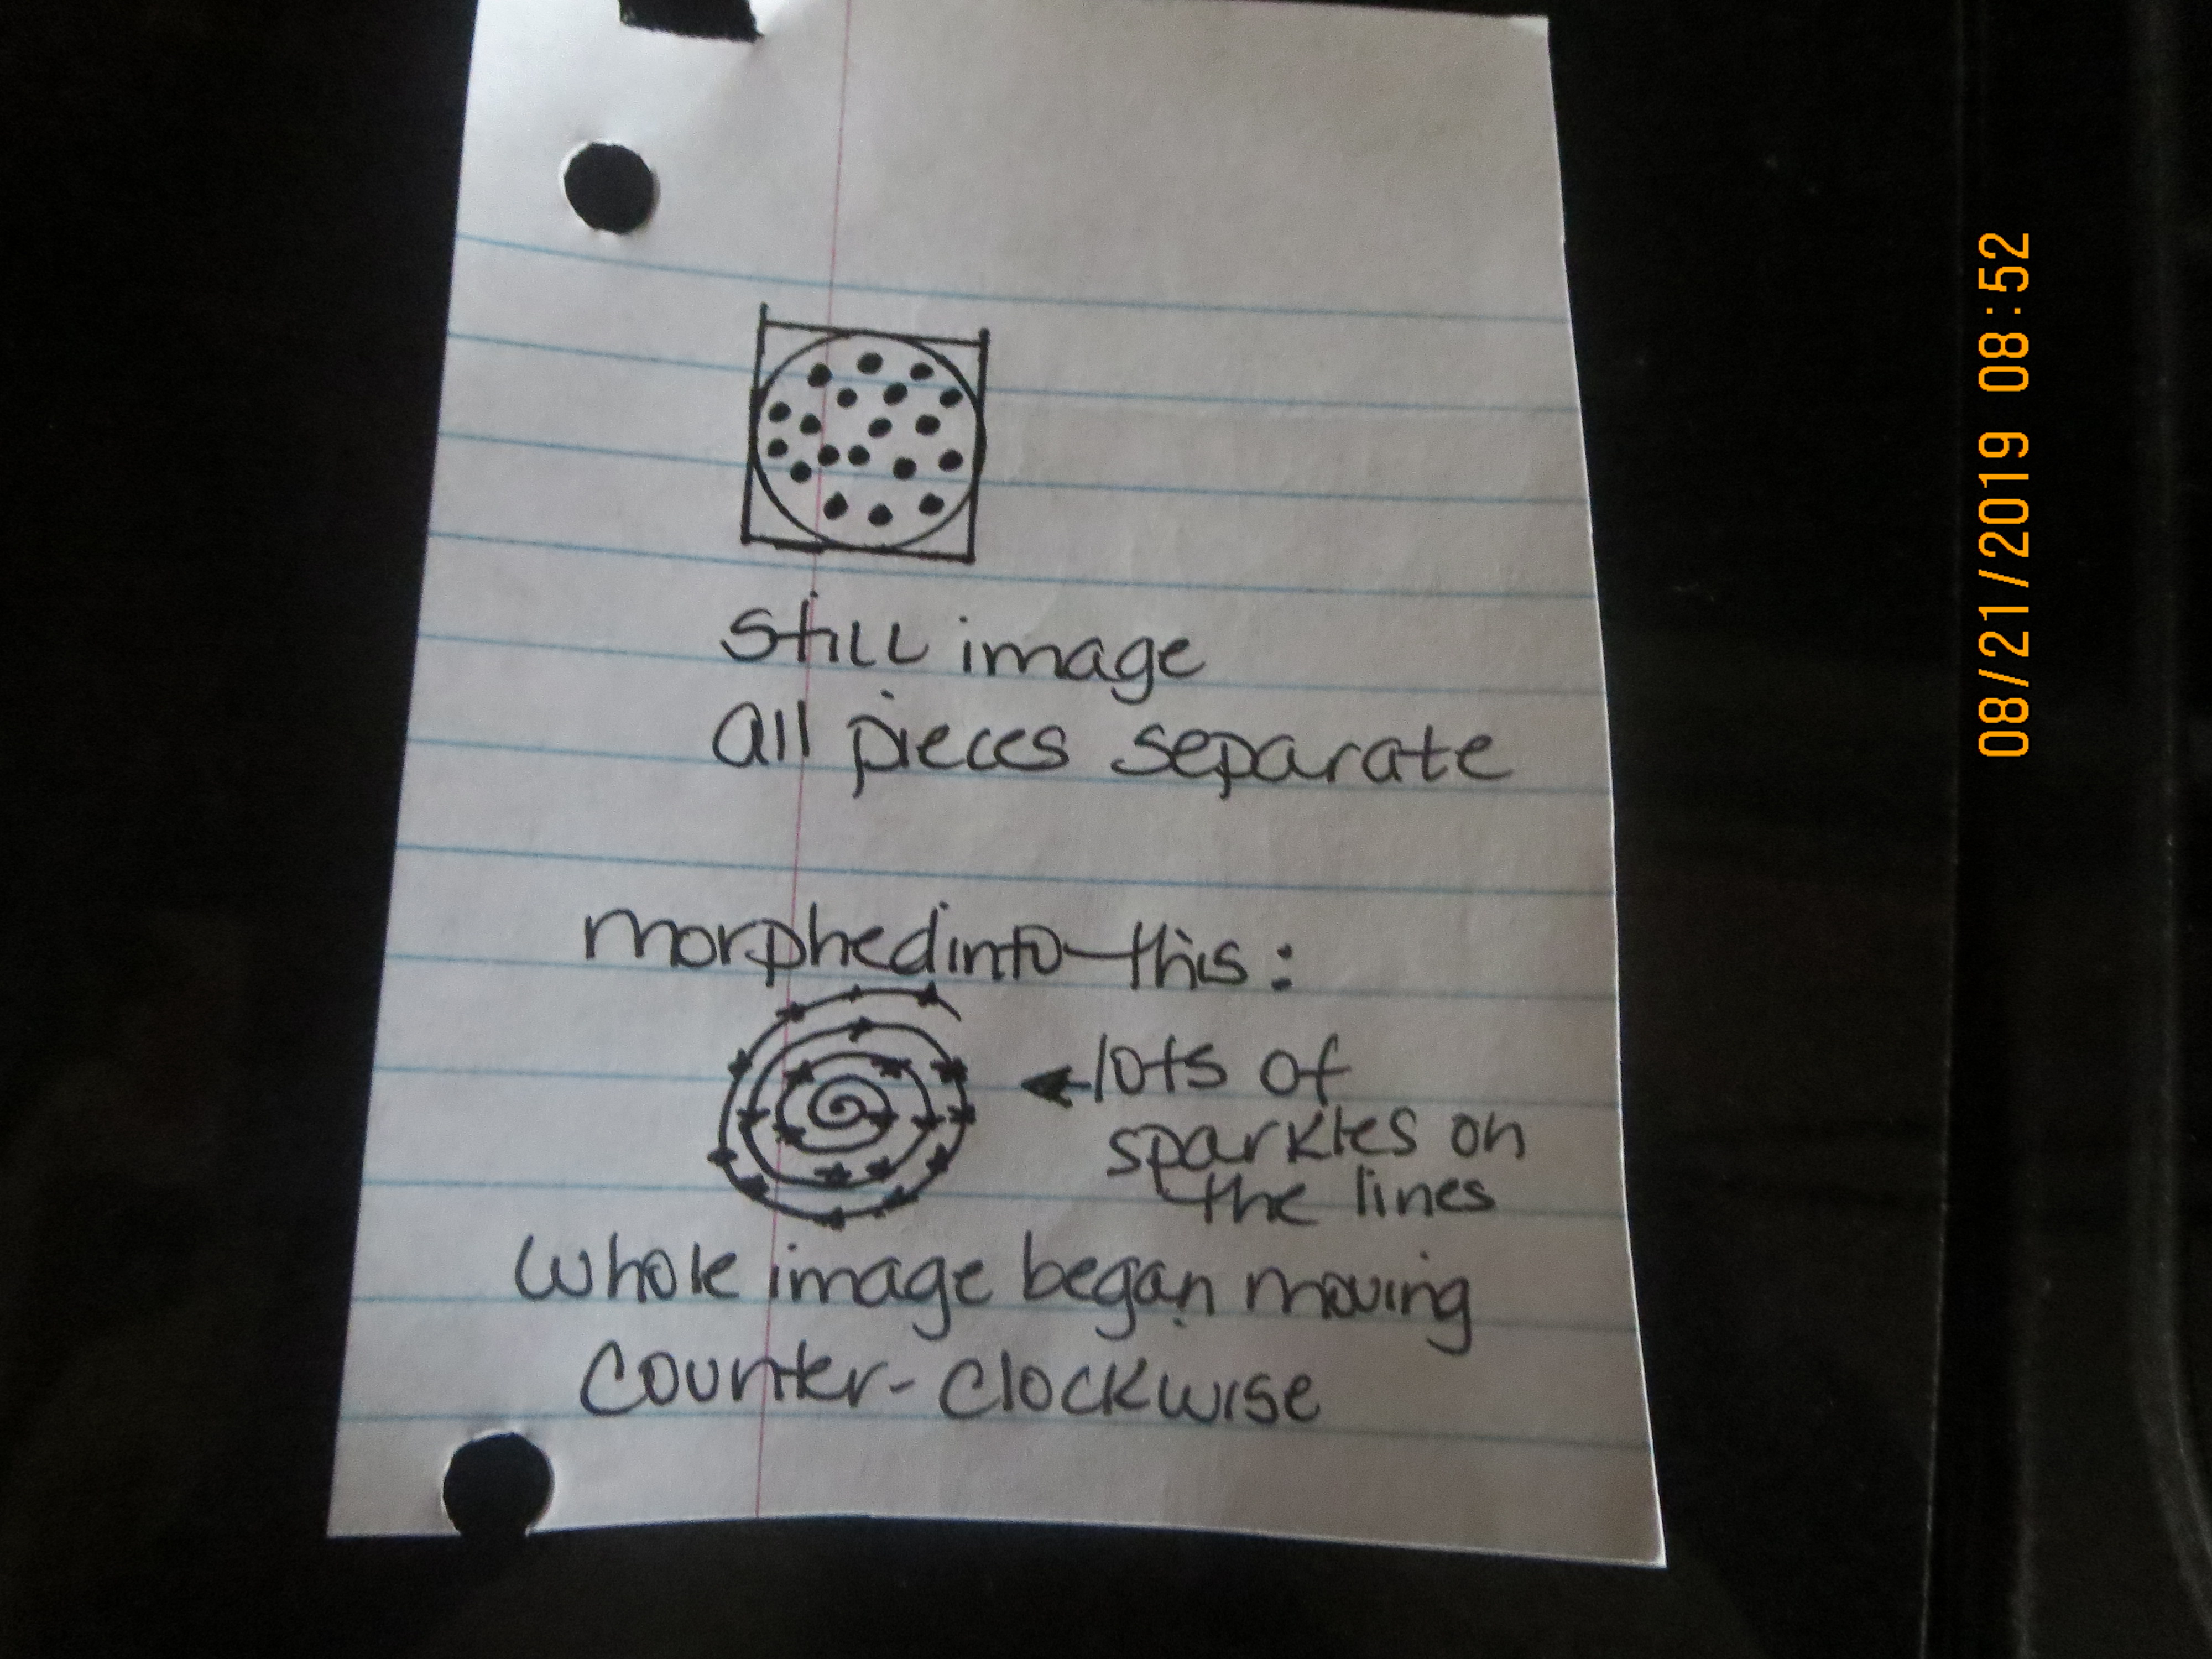 Still image
all pieces separate
morphed into this:
lots of
sparkles on
the lines
Whole image began moving
Counter-Clockwise
08/21/2019 08:52